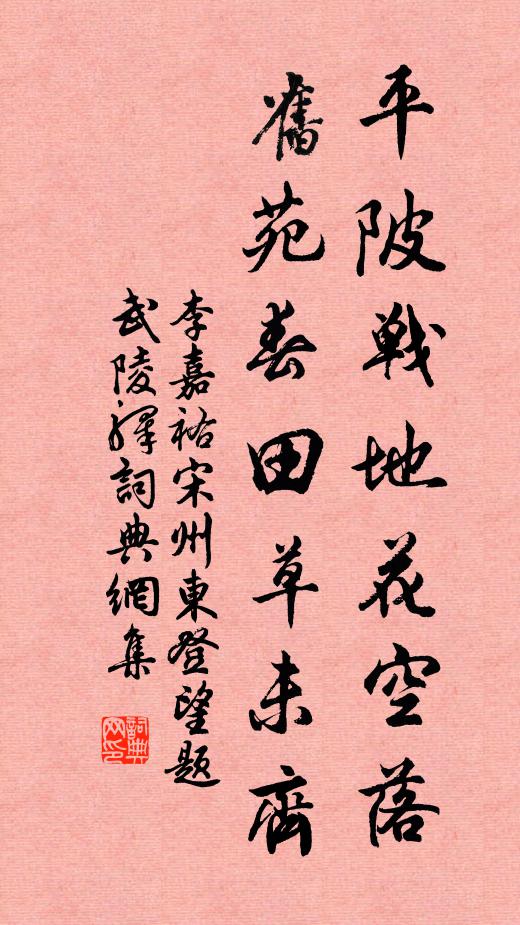 平陂戰地花空落
舊苑春田草未齊
李嘉祐宋州東登望題
武陵驛詞典網集
詞典網印